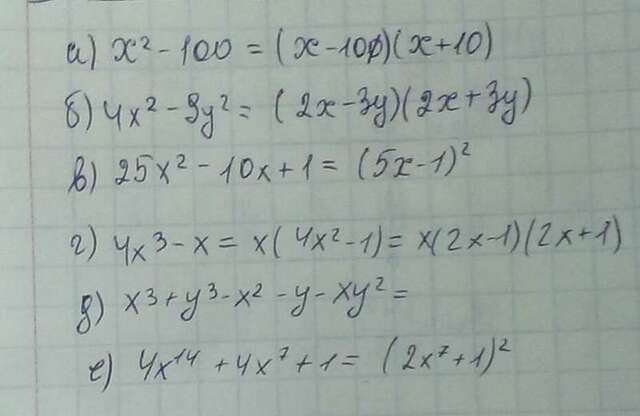 а) x² - 100 = (x - 10)(x + 10)
б) 4x² - 9y² = (2x - 3y)(2x + 3y)
в) 25x² - 10x + 1 = (5x - 1)²
г) 4x³ - x = x(4x² - 1) = x(2x - 1)(2x + 1)
д) x³ + y³ - x² - y - xy² =
е) 4x¹⁴ + 4x⁷ + 1 = (2x⁷ + 1)²